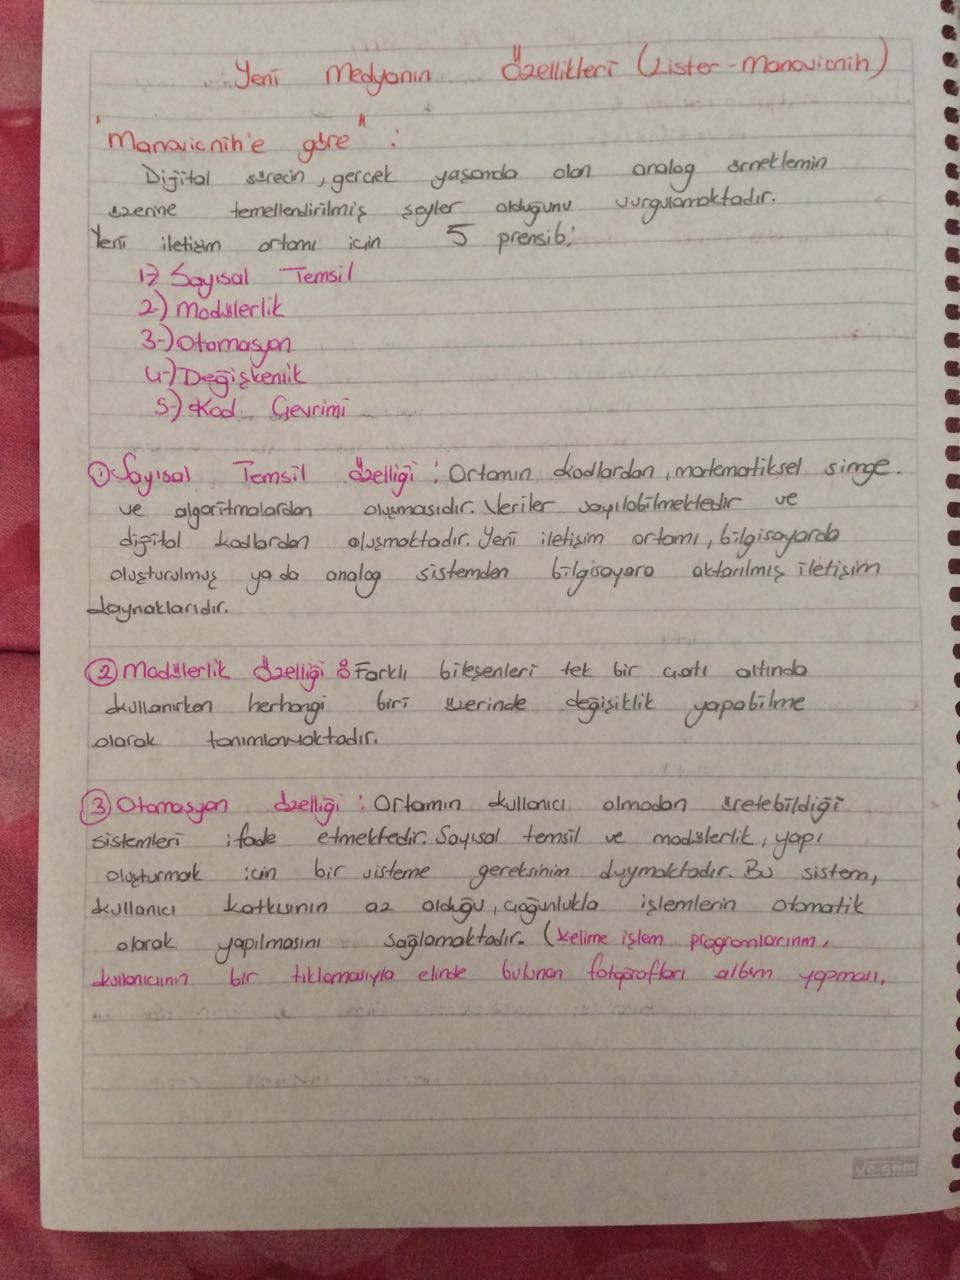 Yeni Medyanın Özellikleri (Lister-Manovicnih)
"Manovicnih'e göre" :
Dijital sürecin, gerçek yaşamda olan analog örneklemin
üzerine temellendirilmiş şeyler olduğunu vurgulamaktadır.
Yeni iletişim ortamı için 5 prensib:
1-) Sayısal Temsil
2-) Modülerlik
3-) Otomasyon
4-) Değişkenlik
5-) Kod Çevrimi
① Sayısal Temsil Özelliği : Ortamın kodlardan, matematiksel simge.
ve algoritmalardan oluşmasıdır. Veriler sayılabilmektedir ve
dijital kodlardan oluşmaktadır. Yeni iletişim ortamı, bilgisayarda
oluşturulmuş ya da analog sistemden bilgisayara aktarılmış iletişim
kaynaklarıdır.
② Modülerlik Özelliği : Farklı bileşenleri tek bir çatı altında
kullanırken herhangi biri üzerinde değişiklik yapabilme
olarak tanımlamaktadır.
③ Otomasyon özelliği : Ortamın kullanıcı olmadan üretebildiği
sistemleri ifade etmektedir. Sayısal temsil ve modülerlik, yapı
oluşturmak için bir sisteme gereksinim duymaktadır. Bu sistem,
kullanıcı katkısının az olduğu, çoğunlukla işlemlerin otomatik
olarak yapılmasını sağlamaktadır. (kelime işlem programlarının,
kullanıcının bir tıklamasıyla elinde bulunan fotoğrafları albüm yapması,